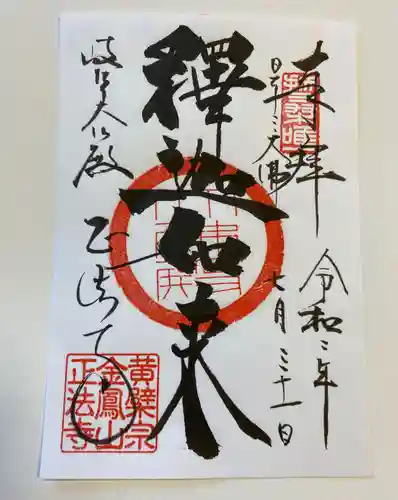 奉拝
日本三大佛
令和二年
七月三十一日
釋迦如来
岐阜大仏殿
正法寺
黄檗宗
金鳳山
正法寺